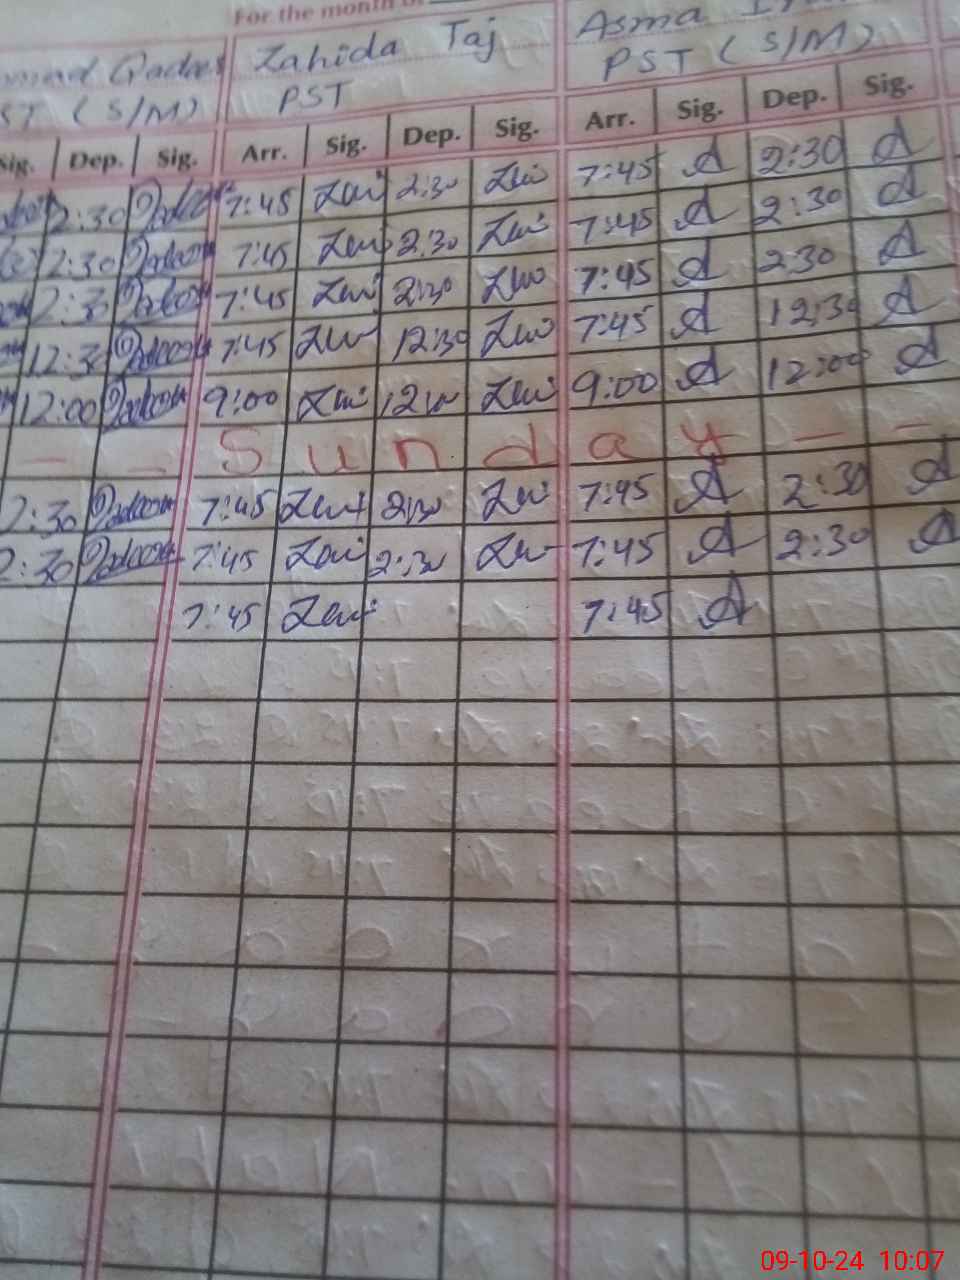 For the month of
Qadar Zahida Taj Asma
(S/M) PST PST (S/M)
Sig. Dep. Sig. Arr. Sig. Dep. Sig. Arr. Sig. Dep. Sig.
2:30 7:45 Zai 2:30 Zai 7:45 A 2:30 A
2:30 7:45 Zai 2:30 Zai 7:45 A 2:30 A
2:30 7:45 Zai 2:30 Zai 7:45 A 2:30 A
12:30 7:45 Zai 12:30 Zai 7:45 A 12:30 A
12:00 9:00 Zai 12:00 Zai 9:00 A 12:00 A
- - Sunday - -
2:30 7:45 Zai 2:30 Zai 7:45 A 2:30 A
2:30 7:45 Zai 2:30 Zai 7:45 A 2:30 A
7:45 Zai 7:45 A
09-10-24 10:07